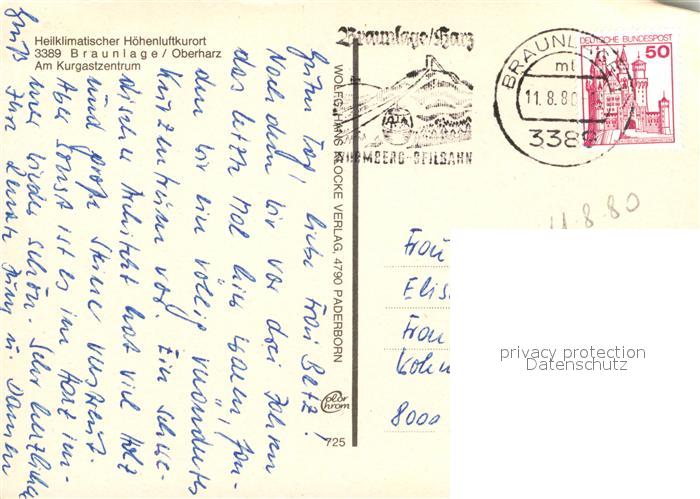 Heilklimatischer Höhenluftkurort
3389 Braunlage / Oberharz
Am Kurgastzentrum
Guten Tag, liebe Frau Betz!
Nachdem wir vor drei Jahren
das letzte Mal hier waren, fan-
den wir ein völlig verändertes
Kurzentrum vor. Ein schwe-
discher Architekt hat viel Holz
und große Steine verstreut.
Aber sonst ist es im Harz im-
mer wieder schön. Sehr herzliche
Grüß
Ihre
u.
WOLFG. HANS KLOCKE VERLAG, 4790 PADERBORN
Color
Chrom
725
Braunlage/Harz
WURMBERG-SEILBAHN
BRAUNL
mt
11.8.80
3389
DEUTSCHE BUNDESPOST
50
11.8.80
Frau
Elis
Frau
Kohn
8000
privacy protection
Datenschutz